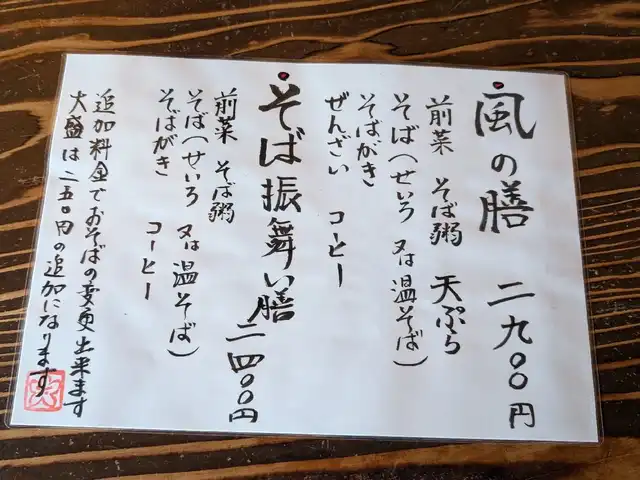 風の膳 二九〇〇円
前菜 そば粥 天ぷら
そば(せいろ 又は温そば)
そばがき
ぜんざい コーヒー
そば振舞い膳 二四〇〇円
前菜 そば粥
そば(せいろ 又は温そば)
そばがき コーヒー
追加料金でおそばの変更出来ます
大盛は二五〇円の追加になります